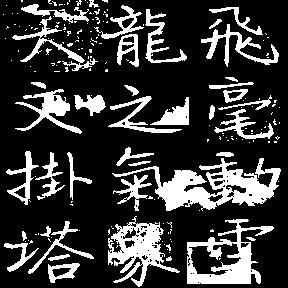 飛毫動雲
龍之氣象
天文掛塔